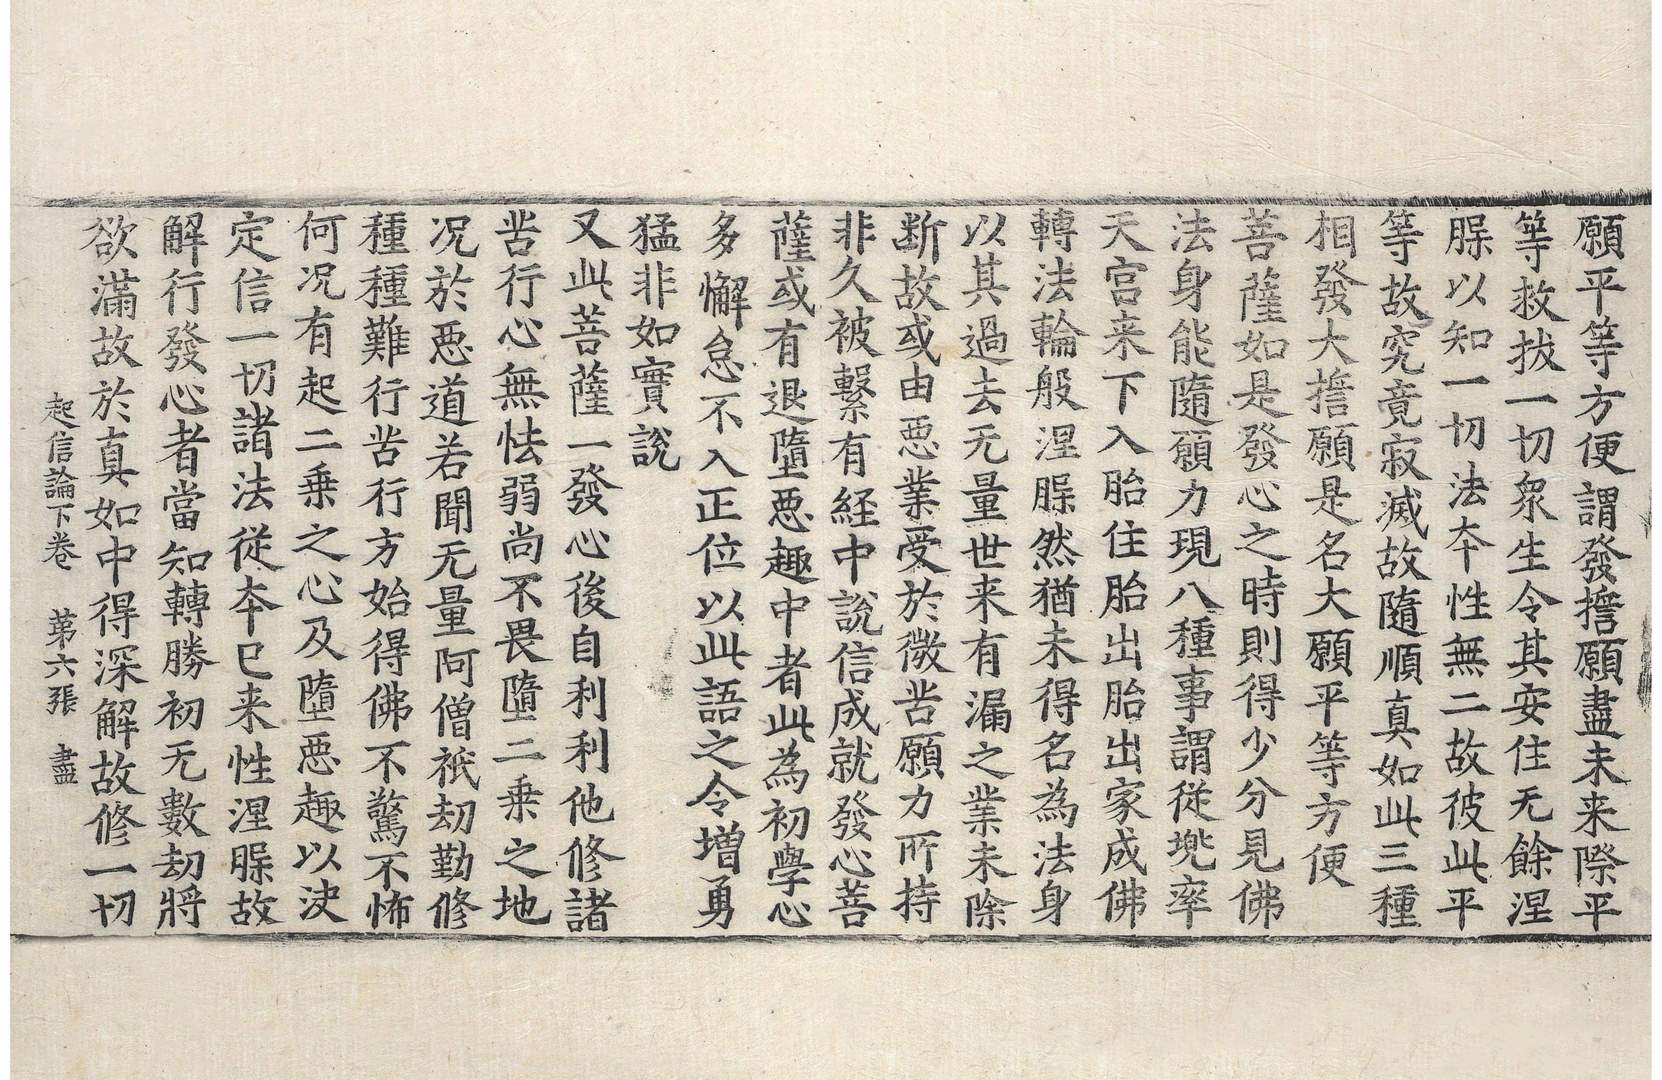 願平等方便謂發擔願盡未来際平
等救拔一切衆生令其安住无餘涅
𦞦以知一切法夲性無二故彼此平
等故究竟寂滅故隨順真如此三種
相發大擔願是名大願平等方便
菩薩如是發心之時則得少分見佛
法身能隨願力現八種事謂從兠率
天宫来下入胎住胎出胎出家成佛
轉法輪般涅𦞦然猶未得名為法身
以其過去无量世来有漏之業未除
断故或由悪業受於微苦願力所持
非久被繫有経中說信成就發心菩
薩或有退墮悪趣中者此為初學心
多懈怠不入正位以此語之令增勇
猛非如實說
又此菩薩一發心後自利利他修諸
苦行心無怯弱尚不畏墮二乗之地
况於悪道若聞无量阿僧祇劫勤修
種種難行苦行方始得佛不驚不怖
何况有起二乗之心及墮悪趣以决
定信一切諸法從夲已来性涅𦞦故
解行發心者當知轉勝初无數劫將
欲滿故於真如中得深解故修一切
起信論下卷 苐六張 盡